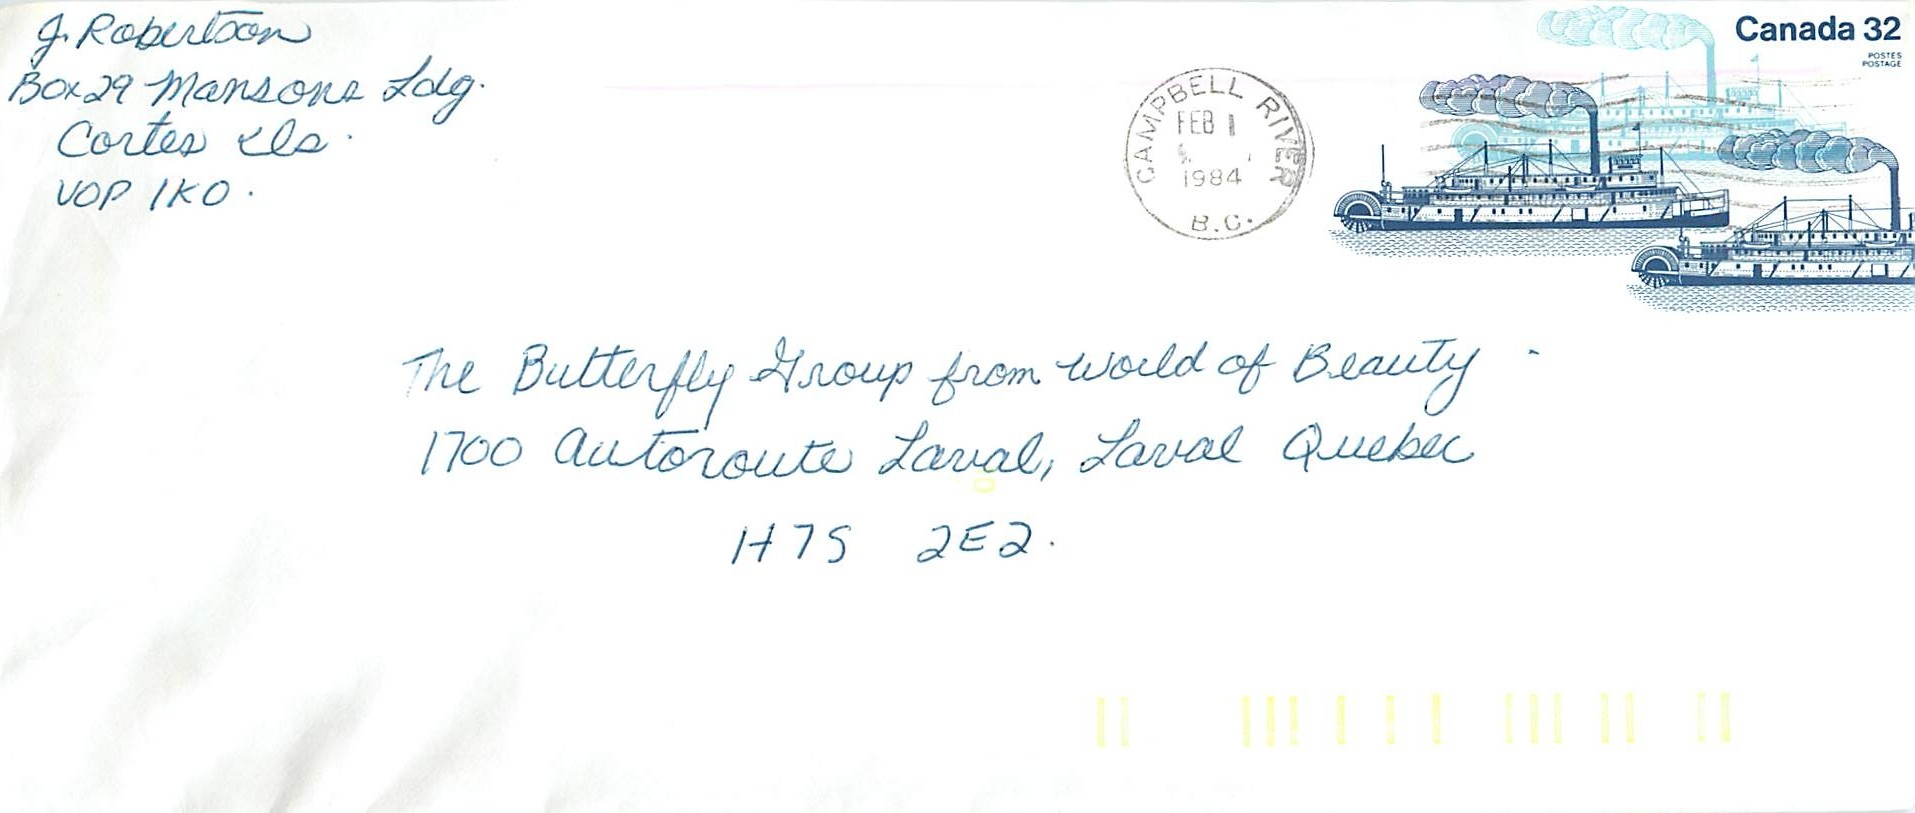 J. Robertson
Box 29 Mansons Ldg.
Cortes Is.
V0P 1K0.
CAMPBELL RIVER
FEB 1
1984
B.C.
Canada 32
POSTES
POSTAGE
The Butterfly Group from World of Beauty
1700 Autoroute Laval, Laval Quebec
H7S 2E2.